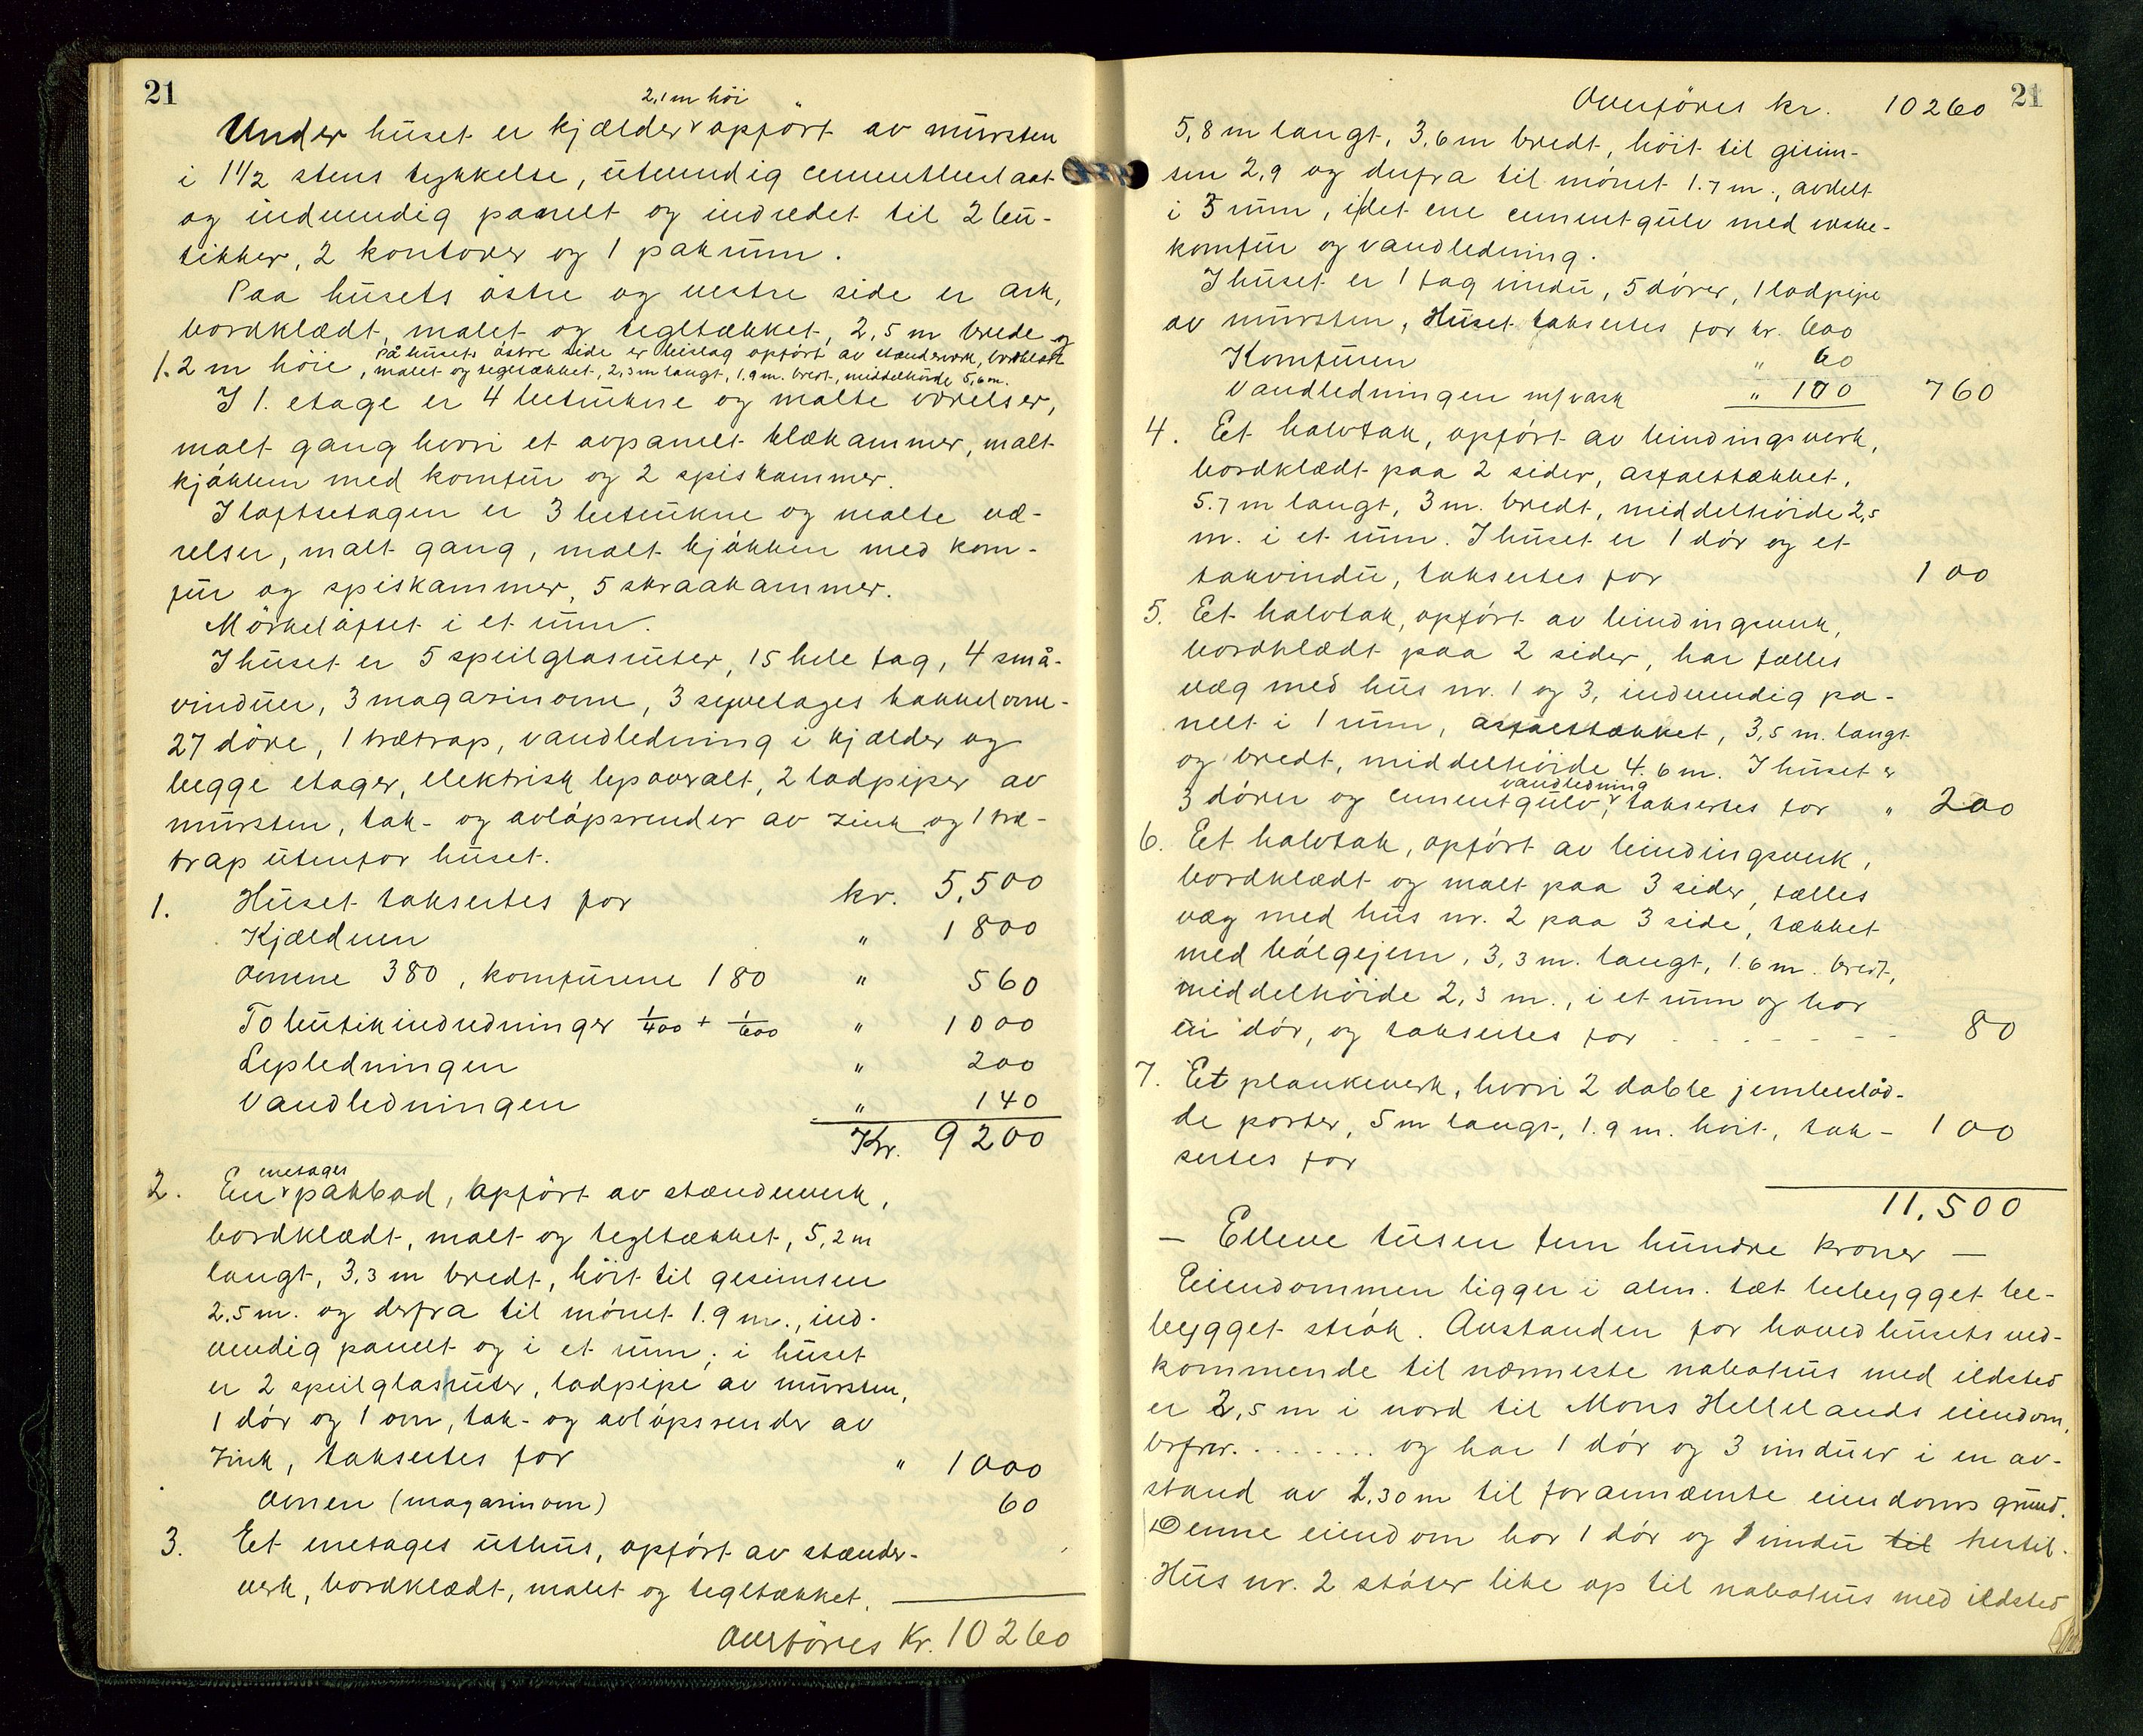 21
2,1 m höi
Under huset er kjælder opført av mursten
i 1 1/2 stens tykkelse, utvendig cementbeslaat
og indvendig panelt og indredet til 2 bu-
tikker, 2 kontorer og 1 pakrum.
Paa husets østre og vestre side er ark,
bordklædt, malet og tegltækket, 2,5 m brede og
1.2 m høie, På husets østre side er bislag opført av stænderverk, bordklædt
malet og tegltækket, 2,3 m langt, 1.9 m. bredt, middelhøide 5,6 m.
I 1. etage er 4 betrukne og malte værelser,
malt gang hvori et avpanelt klækammer, malt
kjøkken med komfur og 2 spiskammer.
I loftsetagen er 3 betrukne og malte væ-
relser, malt gang, malt kjøkken med kom-
fur og spiskammer, 5 skraakammer.
Mørkeloftet i et rum.
I huset er 5 speilglasruter, 15 hele fag, 4 små-
vinduer, 3 magasinovne, 3 syvetages kakkelovne-
27 døre, 1 trætrap, vandledning i kjælder og
begge etager, elektrisk lys overalt, 2 lodpiper av
mursten, tak- og avløpsrender av zink og 1 træ-
trap utenfor huset.
1. Huset taksertes for kr. 5,500
Kjælderen " 1800
Ovnene 380, komfurene 180 " 560
To butikindredninger 1/400 + 1/600 " 1000
Lysledningen " 200
Vandledningen " 140
Kr. 9200
enetages
2. En pakbod, opført av stænderverk,
bordklædt, malt og tegltækket, 5,2 m
langt, 3.3 m bredt, høit til gesimsen
2.5 m. og derfra til mønet 1.9 m., ind-
vendig panelt og i et rum; i huset
er 2 speilglasruter, lodpipe av mursten,
1 dør og 1 ovn, tak- og avløpsrender av
zink, taksertes for " 1000
Ovnen (magasinovn) 60
3. Et enetages uthus, opført av stænder-
verk, bordklædt, malet og tegltækket.
Overføres Kr. 10260
Overføres kr. 10260 21
5,8 m langt, 3,6 m bredt, høit til gisim-
sen 2,9 og derfra til mønet 1.7 m., avdelt
i 3 rum, i det ene cementgulv med vaske-
komfur og vandledning.
I huset er 1 fag vindu, 5 dører, 1 lodpipe
av mursten, Huset taksertes for kr. 600
Komfuren " 60
Vandledningen m/vask " 100 760
4. Et halvtak, opført av bindingsverk,
bordklædt paa 2 sider, asfaltækket,
5.7 m langt, 3 m. bredt, middelhøide 2,5
m. i et rum. I huset er 1 dør og et
takvindu, taksertes for 100
5. Et halvtak, opført av bindingsverk,
bordklædt paa 2 sider, har fælles
væg med hus nr. 1 og 3, indvendig pa-
nelt i 1 rum, asfaltækket, 3,5 m. langt
og bredt, middelhøide 4.6 m. I huset er
vandledning
3 dører og cementgulv, taksertes for " 200
6. Et halvtak, opført av bindingsverk,
bordklædt og malt paa 3 sider, fælles
væg med hus nr. 2 paa 3 side, tækket
med bølgejern, 3,3 m. langt, 1.6 m. bredt,
middelhøide 2,3 m., i et rum og har
en dør, og taksertes for - - - - - - - 80
7. Et plankeverk, hvori 2 doble jernbeslåd-
de porter, 5 m langt, 1.9 m. høit, tak- 100
sertes for
11,500
- Elleve tusen fem hundre kroner -
Eiendommen ligger i alm. tæt bebygget be-
bygget strøk. Avstanden for hovedhusets ved-
kommende til nærmeste nabohus med ildsted
er 2,5 m i nord til Mons Hellelands eiendom,
brfnr. . . . . . . . og har 1 dør og 3 vinduer i en av-
stand av 2.30 m til forannævnte eiendoms grund.
Denne eiendom har 1 dør og 1 vindu til hertil.
Hus nr. 2 støter like op til nabohus med ildsted